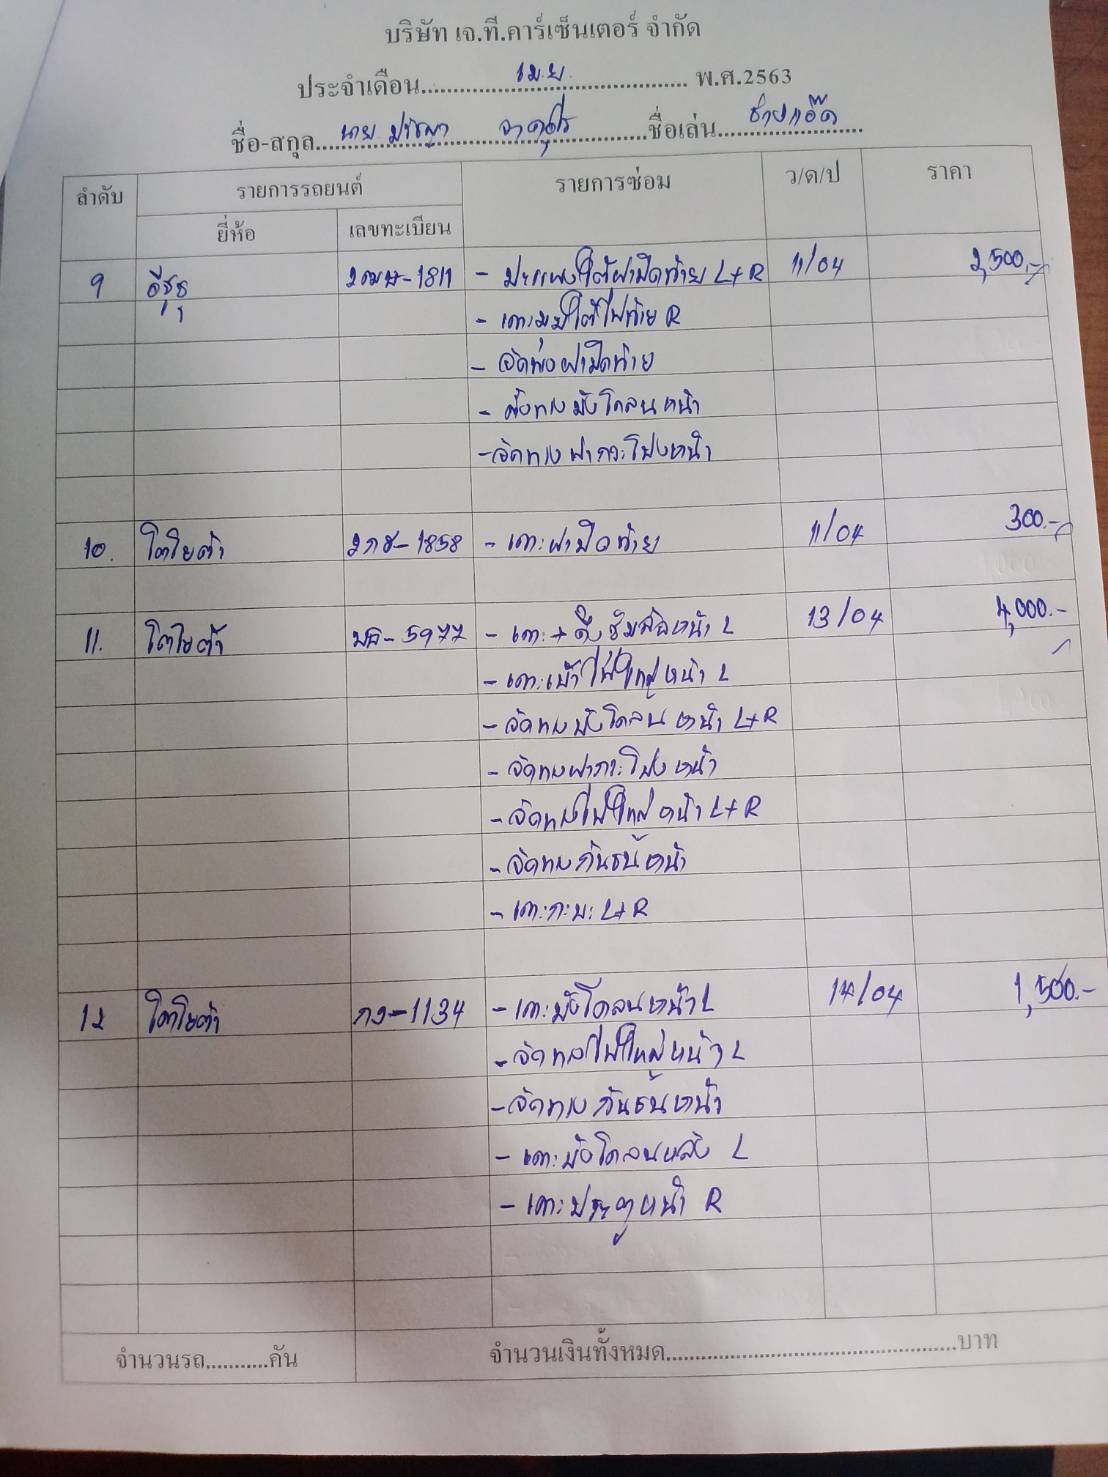 บริษัท เจ.ที.คาร์เซ็นเตอร์ จำกัด
ประจำเดือน.....เม.ย......พ.ศ.2563
ชื่อ-สกุล...นาย ปรัชญา.....ชื่อเล่น...ช่างแอ๊ด...
ลำดับ รายการรถยนต์ รายการซ่อม ว/ด/ป ราคา
ยี่ห้อ เลขทะเบียน
9 อีซูซุ 2ฒษ-1811 - ปะแผงใต้ฝาปิดท้าย L+R 11/04 2,500.-
- เคาะมุมใต้ไฟท้าย R
- จัดทรงฝาปิดท้าย
- ตั้งทรงบังโคลนหน้า
- จัดทรงฝากระโปรงหน้า
10. โตโยต้า 2กช-1858 - เคาะฝาปิดท้าย 11/04 300.-
11. โตโยต้า -5977 - เคาะ+ดึงคัมภีร์หน้า L 13/04 4,000.-
- เคาะเบ้าไฟใหญ่หน้า L
- จัดทรงบังโคลนหน้า L+R
- จัดทรงฝากระโปรงหน้า
- จัดทรงไฟใหญ่หน้า L+R
- จัดทรงกันชนหน้า
- เคาะกะบะ L+R
12 โตโยต้า กง-1134 - เคาะบังโคลนหน้า L 14/04 1,500.-
- จัดทรงไฟใหญ่หน้า L
- จัดทรงกันชนหน้า
- เคาะบังโคลนหลัง L
- เคาะประตูหน้า R
จำนวนรถ...........คัน จำนวนเงินทั้งหมด..................................................บาท